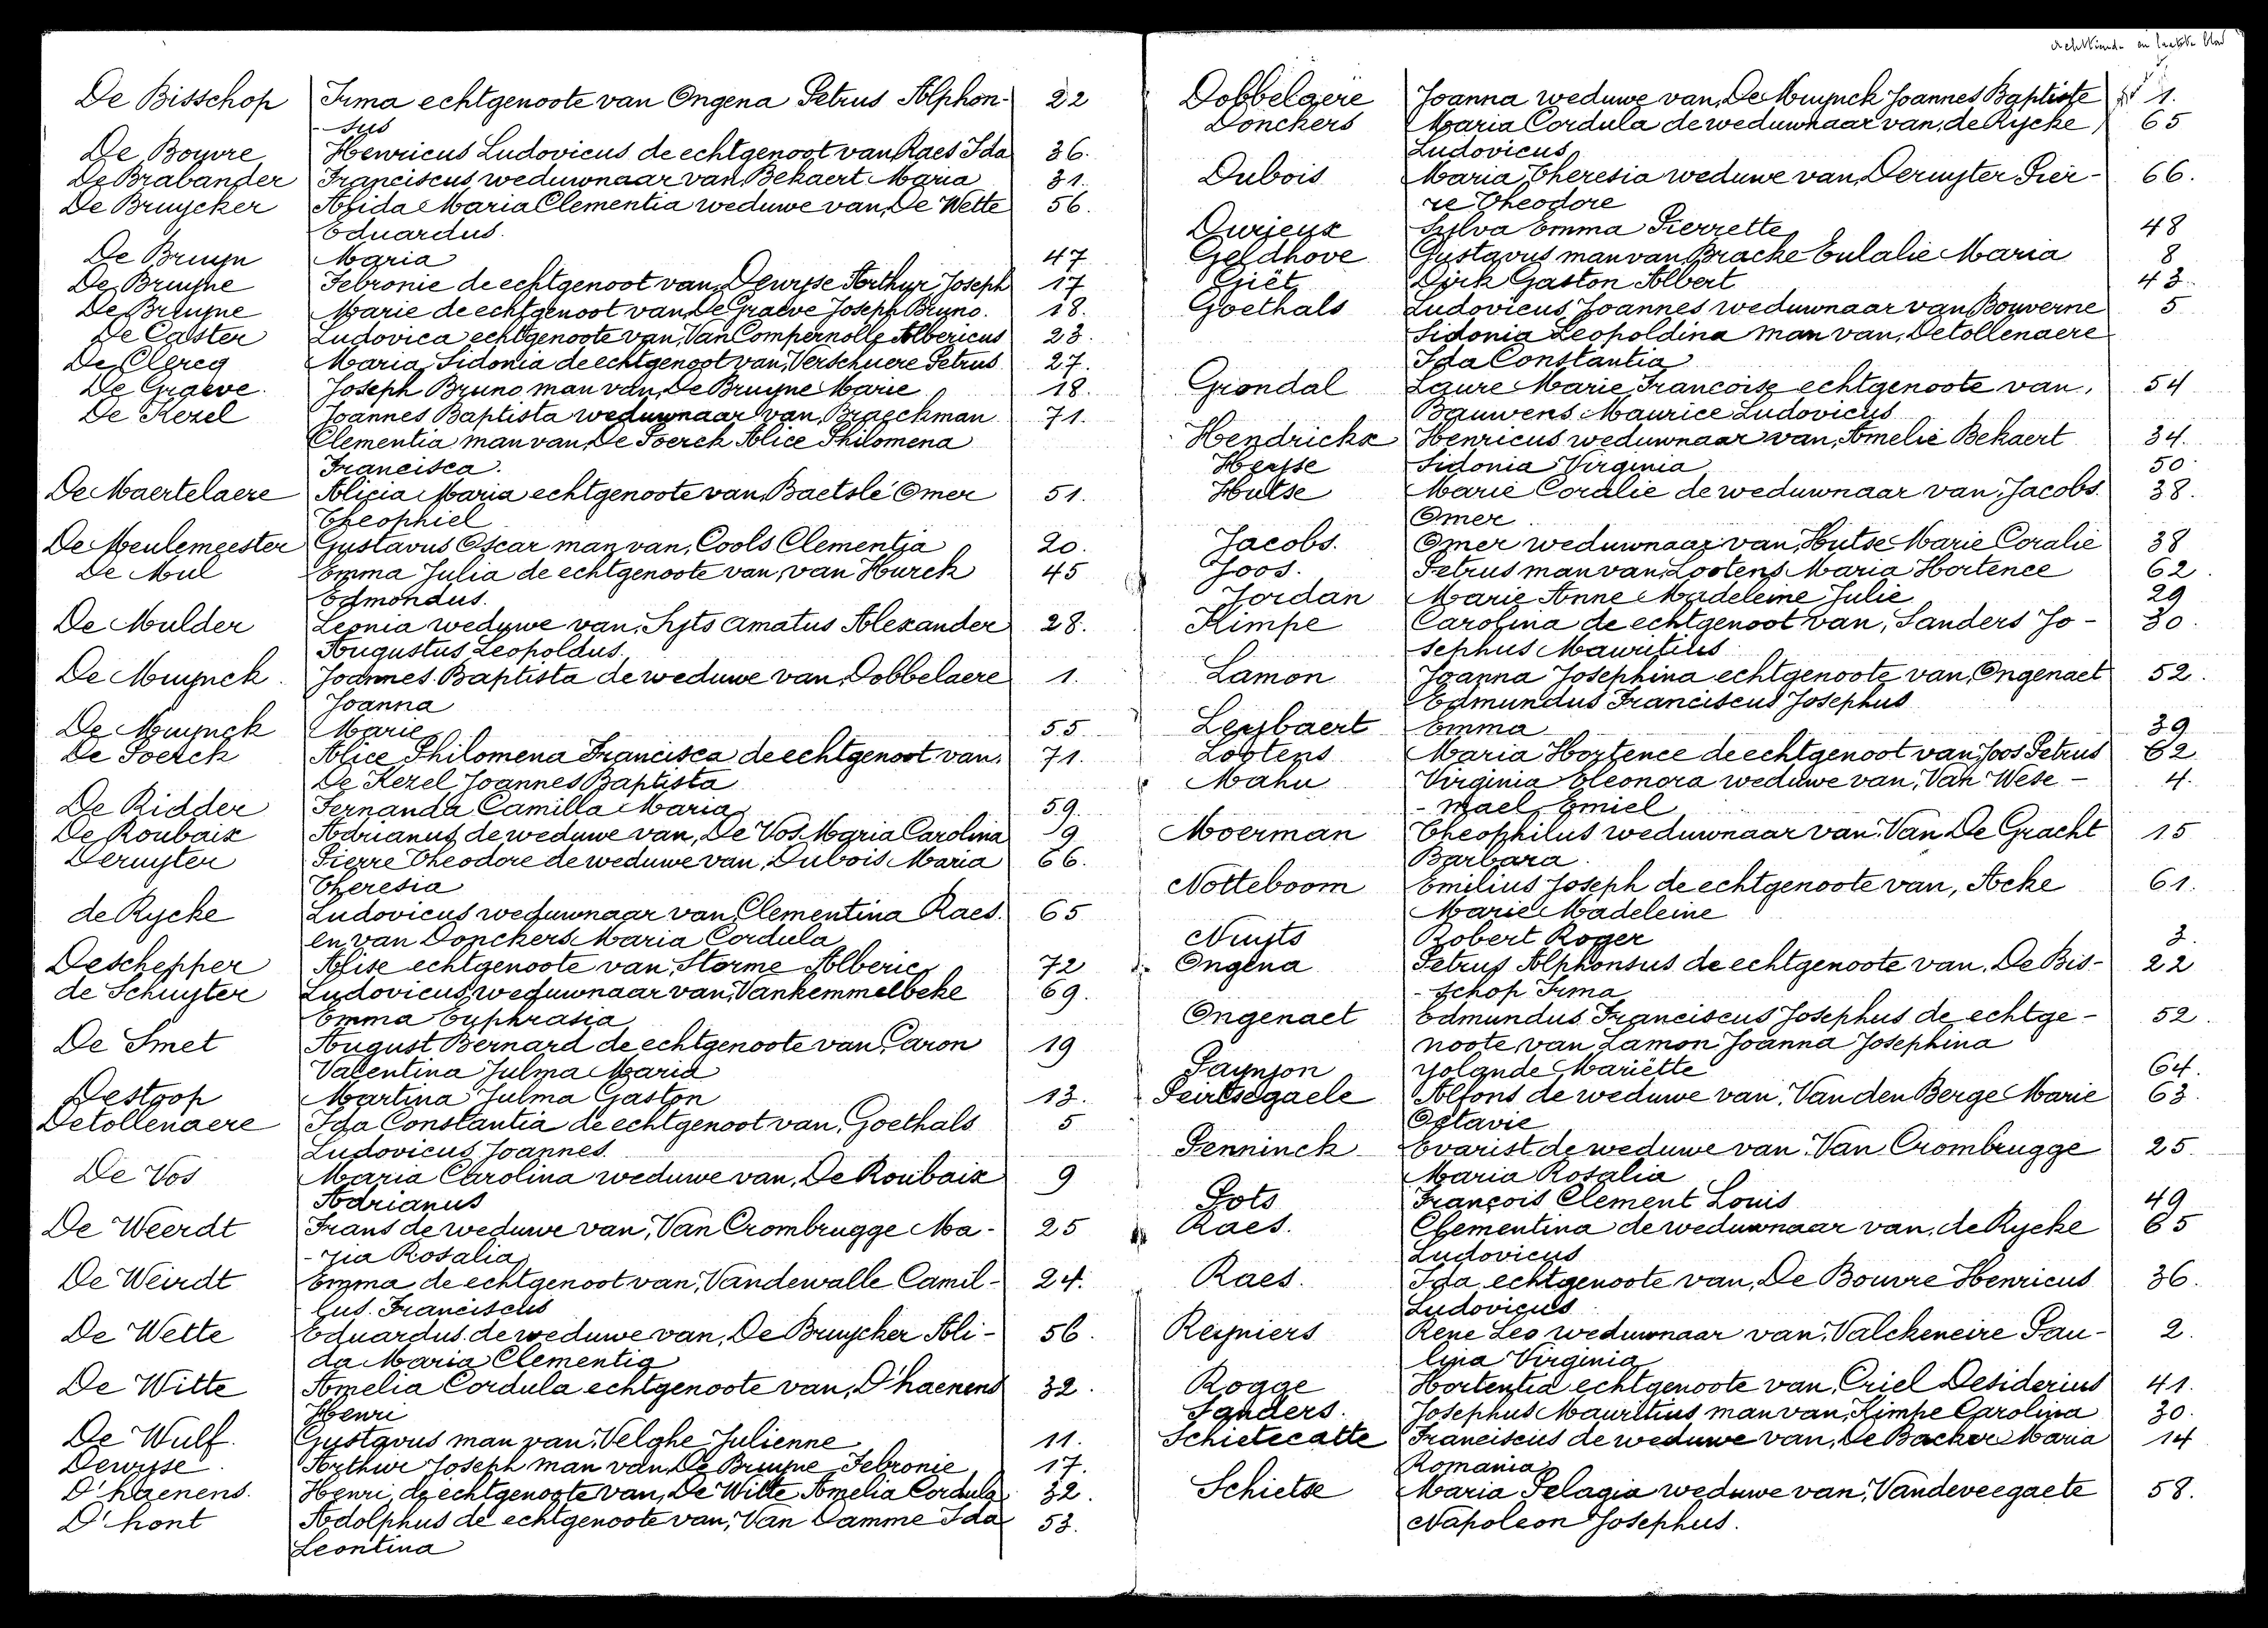 De Bisschop Irma echtgenoote van Ongena Petrus Alphon- 22
- sus
De Bouvre Henricus Ludovicus de echtgenoot van Raes Ida 36.
De Brabander Franciscus weduwnaar van Bekaert Maria 31.
De Bruycker Alida Maria Clementia weduwe van, De Wette 56.
Eduardus.
De Bruyn Maria 47
De Bruyne Febronie de echtgenoot van, Dewyse Arthur Joseph 17
De Bruyne Marie de echtgenoot van De Graeve Joseph Bruno. 18.
De Caster Ludovica echtgenoote van, Van Compernolle Albericus 23.
De Clercq Maria Sidonia de echtgenoot van, Verschuere Petrus 27.
De Graeve. Joseph Bruno man van, De Bruyne Marie 18.
De Kezel Joannes Baptista weduwnaar van, Braeckman 71.
Clementia man van, De Poerck Alice Philomena
Francisca.
De Maertelaere Alicia Maria echtgenoote van, Baetslé Omer 51.
Theophiel
De Meulemeester Gustavus Oscar man van, Cools Clementia 20.
De Mul Emma Julia de echtgenoote van, van Hurck 45
Edmondus.
De Mulder Leonia weduwe van, Syts Amatus Alexander 28.
Augustus Leopoldus.
De Muynck. Joannes Baptista de weduwe van, Dobbelaere 1.
Joanna
De Muynck Marie 55
De Poerck Alice Philomena Francisca de echtgenoot van, 71.
De Kezel Joannes Baptista
De Ridder Fernanda Camilla Maria 59.
De Roubaix Adrianus de weduwe van, De Vos Maria Carolina 9
Deruyter Pierre Theodore de weduwe van, Dubois Maria 66.
Theresia
de Rycke Ludovicus weduwnaar van, Clementina Raes. 65
en van Donckers Maria Cordula
Deschepper Alise echtgenoote van, Storme Alberic 72
de Schuyter Ludovicus weduwnaar van, Vankemmelbeke 69.
Emma Euphrasia
De Smet August Bernard de echtgenoote van, Caron 19
Valentina Julma Maria
Destoop Martina Julma Gaston 13.
Detollenaere Ida Constantia de echtgenoot van, Goethals 5
Ludovicus Joannes.
De Vos Maria Carolina weduwe van, De Roubaix 9
Adrianus
De Weerdt Frans de weduwe van, Van Crombrugge Ma- 25
- ria Rosalia
De Weirdt Emma de echtgenoot van, Vandewalle Camil- 24.
lus. Franciscus
De Wette Eduardus de weduwe van, De Bruycker Ali- 56.
da Maria Clementia
De Witte Amelia Cordula echtgenoote van, D'haenens 32.
Henri
De Wulf. Gustavus man van, Velghe Julienne 11.
Dewyse. Arthur Joseph man van, De Bruyne Febronie 17.
D'haenens. Henri de echtgenoote van, De Witte Amelia Cordula 32.
D'hont Adolphus de echtgenoote van, Van Damme Ida 53.
Leontina
en laatste blad
Dobbelaere Joanna weduwe van, De Muynck Joannes Baptiste 1.
Donckers Maria Cordula de weduwnaar van, de Rycke 65
Ludovicus
Dubois Maria Theresia weduwe van, Deruyter Pier- 66.
re Theodore
Durieux Sylva Emma Pierrette 48
Geldhove Gustavus man van, Bracke Eulalie Maria 8
Giët Dirk Gaston Albert 43.
Goethals Ludovicus Joannes weduwnaar van Bouverne 5
Sidonia Leopoldina man van, Detollenaere
Ida Constantia
Grondal Laure Marie Francoise echtgenoote van, 54
Bauwens Maurice Ludovicus
Hendrickx Henricus weduwnaar van, Amelie Bekaert 34.
Heysse Sidonia Virginia 50
Hutse Marie Coralie de weduwnaar van, Jacobs 38.
Omer
Jacobs. Omer weduwnaar van, Hutse Marie Coralie 38
Joos. Petrus man van, Lootens Maria Hortence 62.
Jordan Marie Anne Madeleine Julie 29
Kimpe Carolina de echtgenoot van, Sanders Jo- 30.
sephus Mauritius
Lamon Joanna Josephina echtgenoote van, Ongenaet 52.
Edmundus Franciscus Josephus
Leybaert Emma 39
Lootens Maria Hortence de echtgenoot van, Joos Petrus 62
Mahu Virginia Eleonora weduwe van, Van Wese- 4.
- mael Emiel
Moerman Theophilus weduwnaar van, Van De Gracht 15
Barbara.
Notteboom Emilius Joseph de echtgenoote van, Acke 61.
Marie Madeleine
Nuyts Robert Roger 3.
Ongena Petrus Alphonsus de echtgenoote van, De Bis- 22
- schop Irma
Ongenaet Edmundus Franciscus Josephus de echtge- 52.
noote van Lamon Joanna Josephina
Paynjon Yolande Mariëtte 64.
Peirtsegaele Alfons de weduwe van, Van den Berge Marie 63.
Octavie
Penninck Evarist de weduwe van, Van Crombrugge 25.
Maria Rosalia
Pots François Clement Louis 49
Raes. Clementina de weduwnaar van, de Rycke 65
Ludovicus
Raes. Ida echtgenoote van, De Bouvre Henricus 36.
Ludovicus
Reyniers Rene Leo weduwnaar van, Valckeneire Pau- 2.
lina Virginia
Rogge Hortentia echtgenoote van, Criel Desiderius 41.
Sanders. Josephus Mauritius man van, Kimpe Carolina 30.
Schietecatte Franciscus de weduwe van, De Backer Maria 14
Romania
Schietse Maria Pelagia weduwe van, Vandeveegaete 58.
Napoleon Josephus.